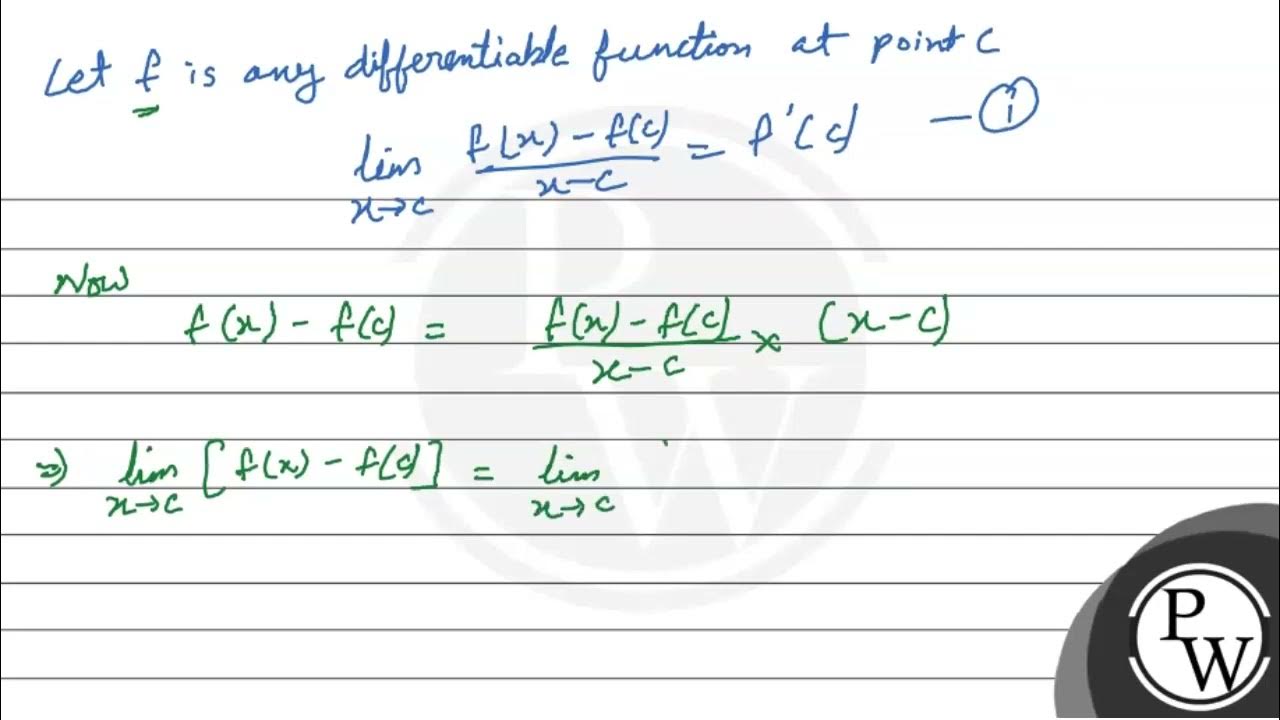 Let f is any differentiable function at point c
lim x→c (f(x) - f(c))/(x-c) = f'(c) — ①
Now
f(x) - f(c) = (f(x) - f(c))/(x-c) × (x-c)
⇒ lim x→c [f(x) - f(c)] = lim x→c
PW
PW